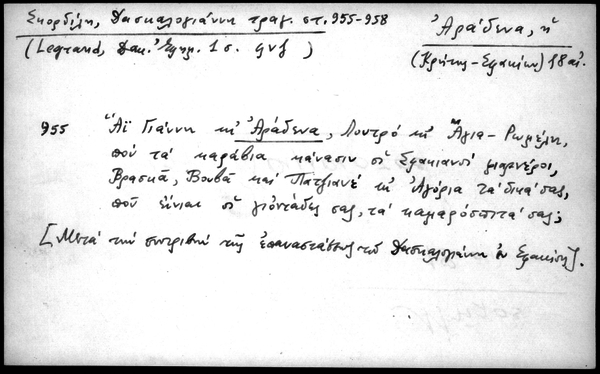 Σκορδίλη, Δασκαλογιάννη τραγ. στ. 955-958
(Legrand, 1 σ. ϟνϛ)
Ἀράδενα, ἡ
(Κρήτης-Σφακίων) 18 αἰ.
955 Ἅϊ Γιάννη κὶ Ἀράδενα, Λουτρό κὶ Ἅγια-Ρωμέλη,
ποὺ τὰ καράβια κάνασιν οἱ Σφακιανοὶ μαρνέροι,
Βρασκᾶ, Βουβᾶ καὶ Πατζιανὲ κὶ Ἀγόρια τὰ δικά σας,
ποῦ εἶναι οἱ γιόντάδες σας, τὰ καμαρόσπιτά σας;
[Μετά τὴν συντριβὴ τῆς ἐπαναστάσεως τοῦ Δασκαλογιάννη ἐν Σφακίοις].